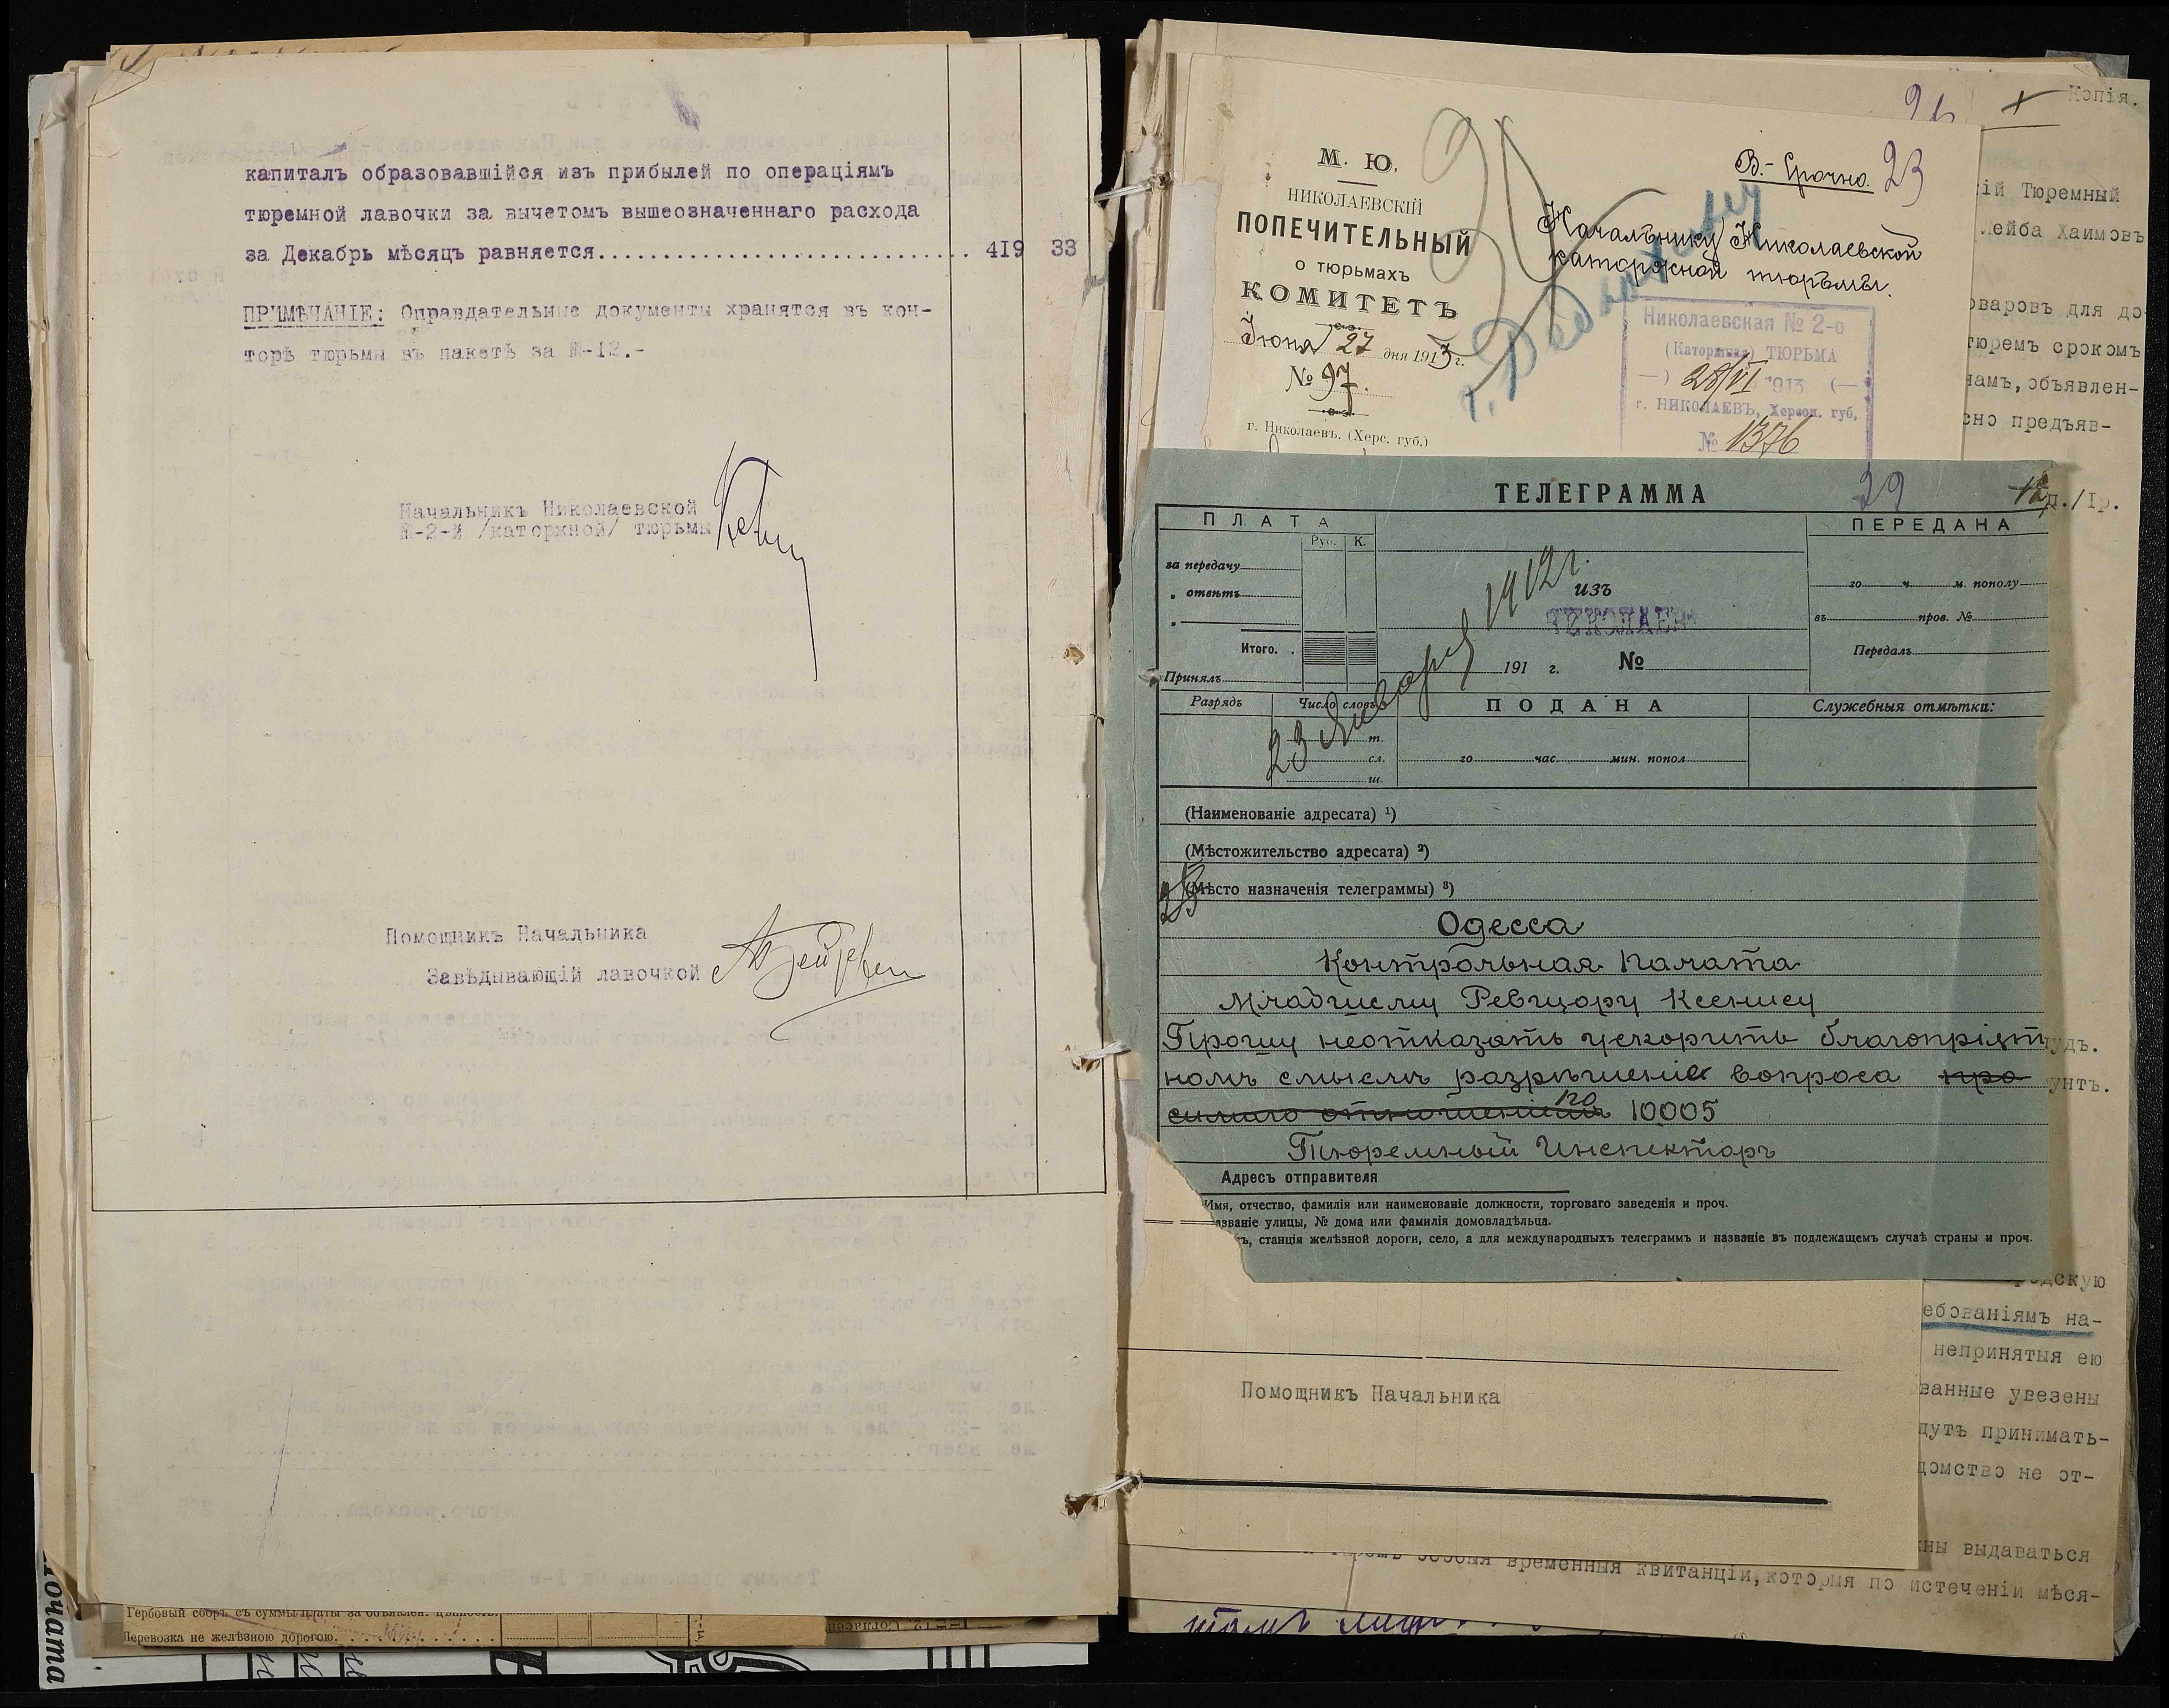 капиталъ образовавшійся изъ прибылей по операціямъ
тюремной лавочки за вычетомъ вышеозначеннаго расхода
за Декабрь мѣсяцъ равняется.............................. 419 33
ПРИМѢЧАНІЕ: Оправдательные документы хранятся въ кон-
торѣ тюрьмы въ пакетѣ за №-12.-
Начальникъ Николаевской
№-2-й /каторжной/ тюрьмы
Помощникъ Начальника
Завѣдывающій лавочкой
Гербовый сборъ съ суммы платы за объявлен. цѣнность
Перевозка не желѣзною дорогою.
Почата
Копія.
М. Ю.
НИКОЛАЕВСКІЙ
ПОПЕЧИТЕЛЬНЫЙ
о тюрьмахъ
КОМИТЕТЪ
Іюня 27 дня 1913 г.
№ 97.
г. Николаевъ, (Херс. губ.)
В.- Срочно. 23
Начальнику Николаевской
каторжной тюрьмы.
Николаевская № 2-о
(Каторжная) ТЮРЬМА
28/VI 1913
г. НИКОЛАЕВЪ, Херсон. губ,
№ 1376
ій Тюремный
Лейба Хаимовъ
оваровъ для до
тюремъ срокомъ
намъ,объявлен-
сно предъяв-
д./Iр.
ТЕЛЕГРАММА 29
ПЛАТА
Руб. К.
за передачу
" отвѣтъ
"
Итого. .
Принялъ
23 Января 1912 г.
изъ
НИКОЛАЕВ
191 г. №
ПЕРЕДАНА
го ч. м. пополу
въ пров. №
Передалъ
Разрядъ
Число словъ
т.
сл.
ш.
ПОДАНА
го час. мин. попол
Служебныя отмѣтки:
(Наименованіе адресата) ¹)
(Мѣстожительство адресата) ²)
(Мѣсто назначенія телеграммы) ³)
Одесса
Контрольная Палата
Младшему Ревизору Ксенису
Прошу неотказать ускорить благопріят
номъ смыслѣ разрѣшеніе вопроса про
по 10005
Тюремный Инспекторъ
Адресъ отправителя
Имя, отчество, фамилія или наименованіе должности, торговаго заведенія и проч.
азваніе улицы, № дома или фамилія домовладѣльца.
ъ, станція желѣзной дороги, село, а для международныхъ телеграммъ и названіе въ подлежащемъ случаѣ страны и проч.
удъ.
унтъ.
родскую
ебованіямъ на-
непринятыя ею
ванные увезены
дутъ принимать-
домство не от-
Помощникъ Начальника
ны выдаваться
временныя квитанціи,которыя по истеченіи мѣся-